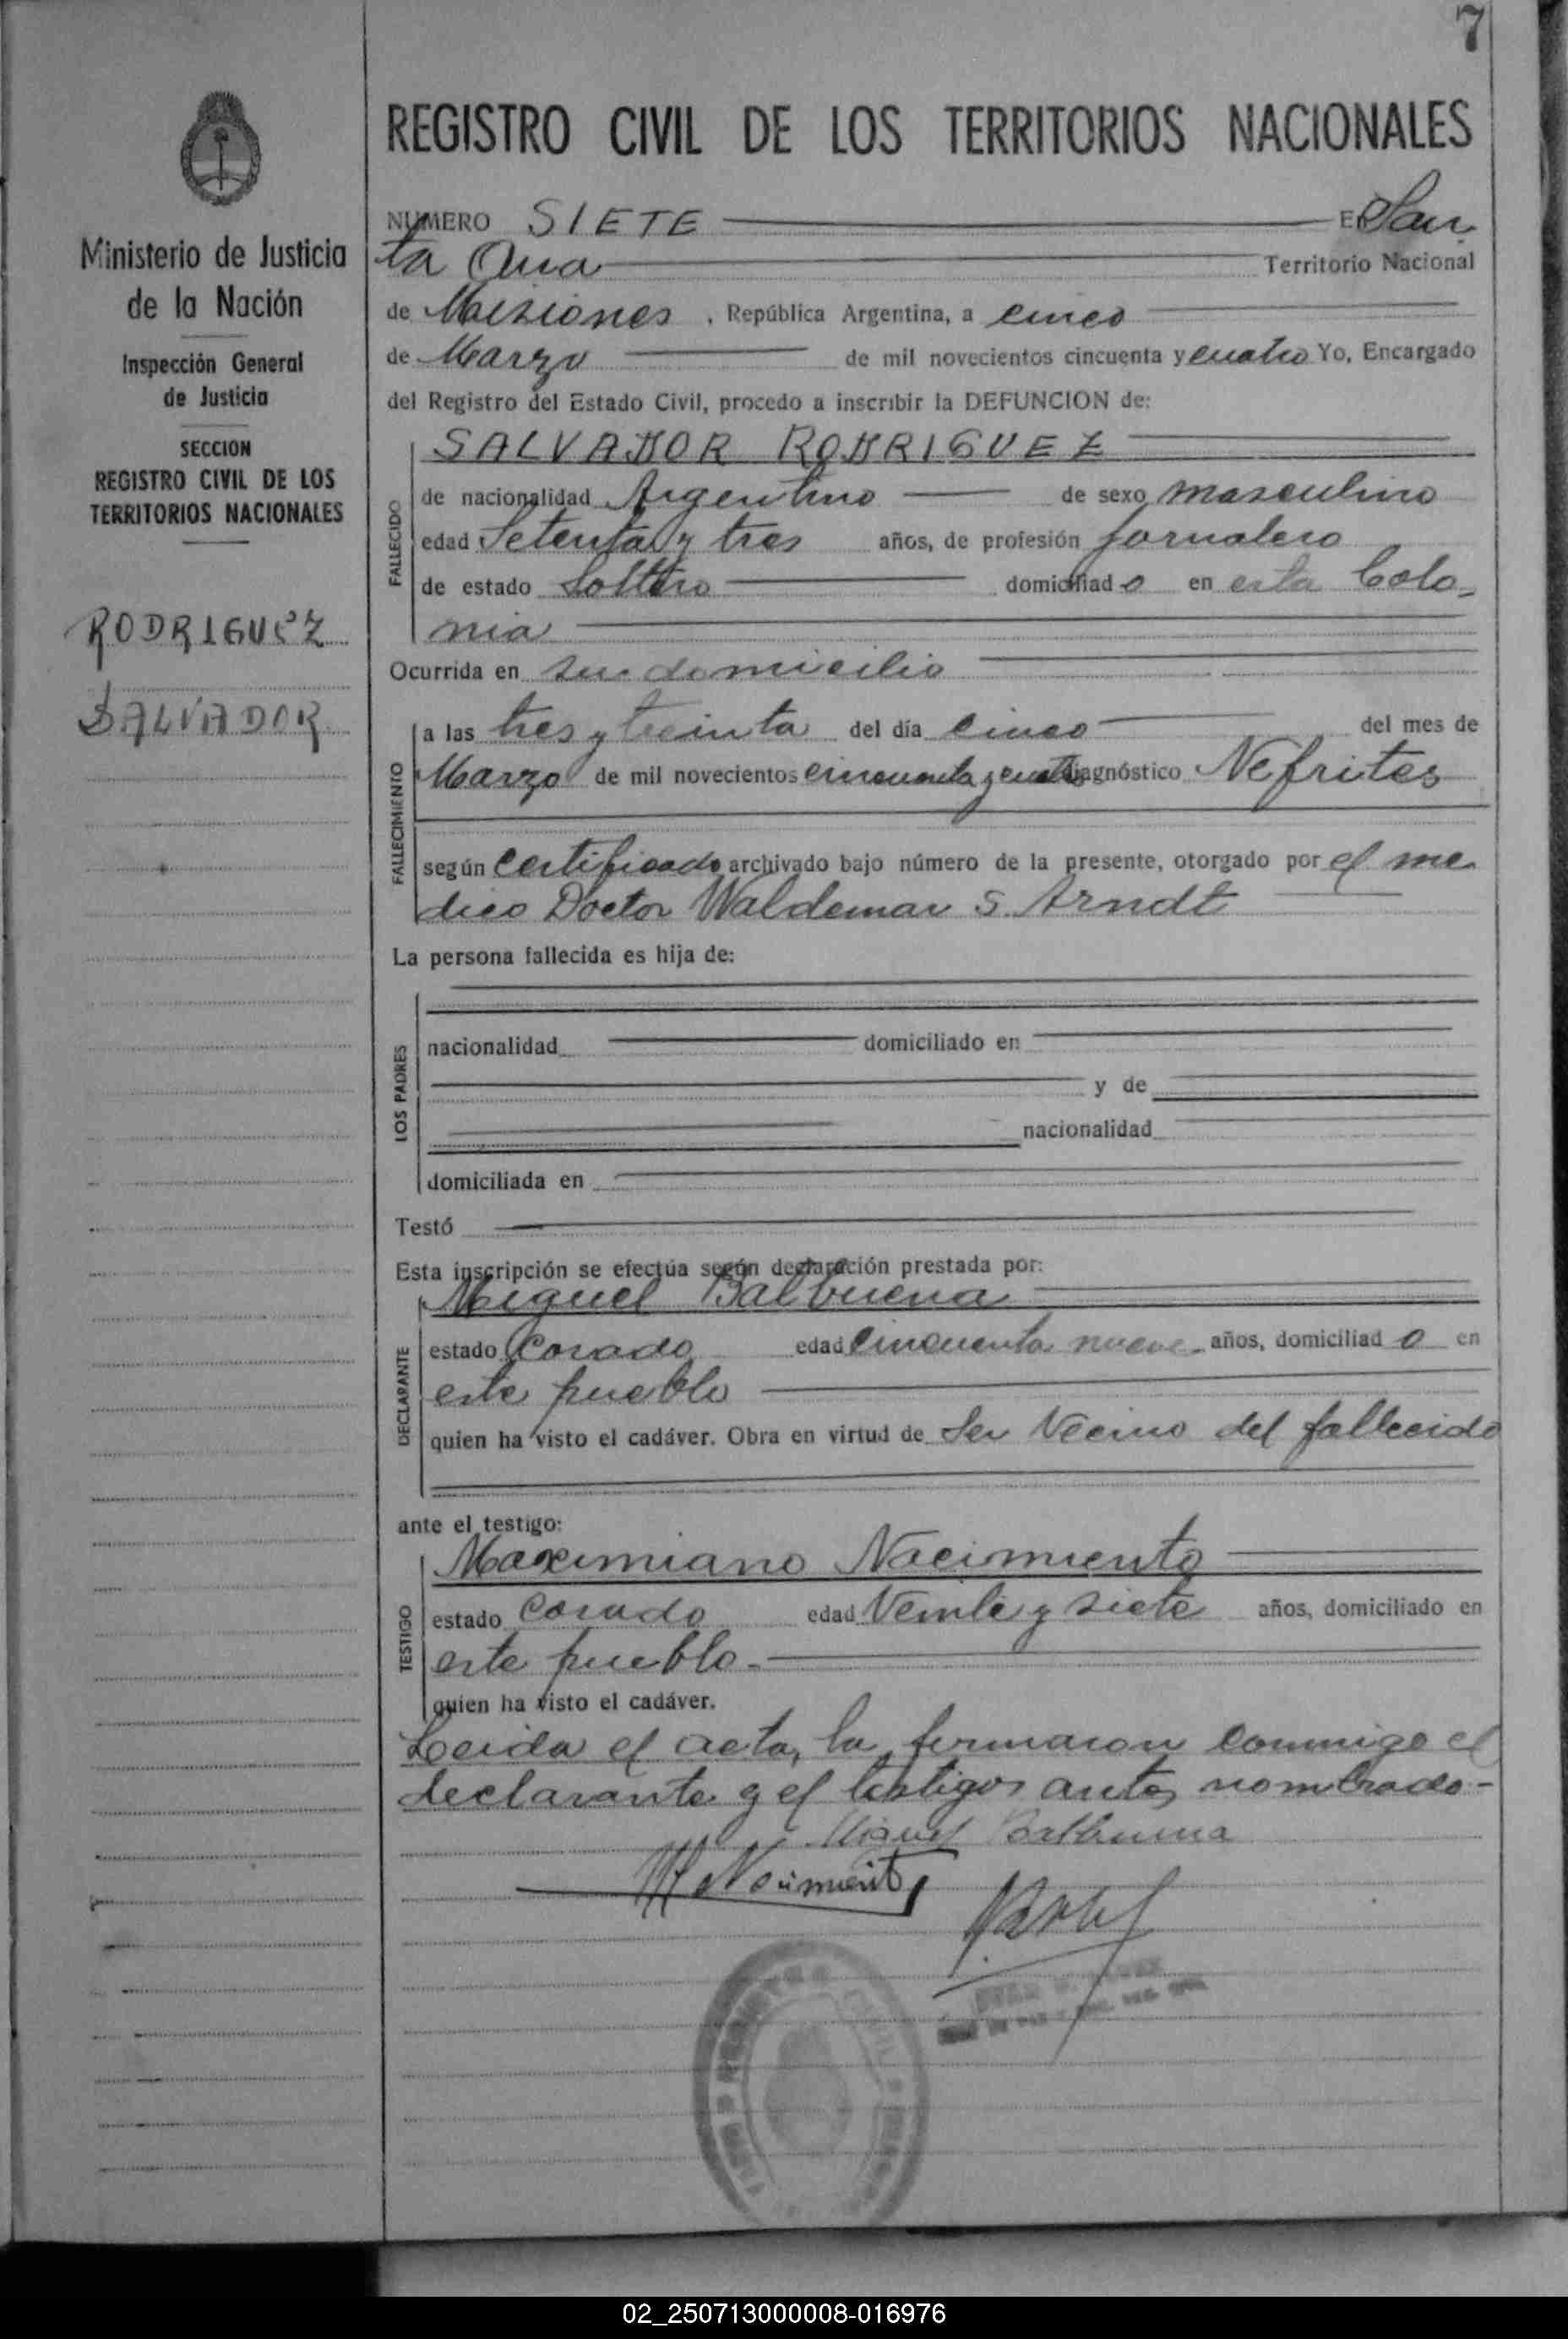 7
REGISTRO CIVIL DE LOS TERRITORIOS NACIONALES
Ministerio de Justicia
de la Nación
Inspección General
de Justicia
SECCION
REGISTRO CIVIL DE LOS
TERRITORIOS NACIONALES
RODRIGUEZ
SALVADOR
NUMERO SIETE En San
ta Ana Territorio Nacional
de Misiones, República Argentina, a cinco
de Marzo de mil novecientos cincuenta y cuatro Yo, Encargado
del Registro del Estado Civil, procedo a inscribir la DEFUNCION de:
SALVADOR RODRIGUEZ
FALLECIDO
de nacionalidad Argentino de sexo masculino
edad Setenta y tres años, de profesión jornalero
de estado Soltero domiciliado en esta Colo-
nia
Ocurrida en su domicilio
FALLECIMIENTO
a las tres y treinta del día cinco del mes de
Marzo de mil novecientos cincuenta y cuatro diagnóstico Nefrites
según certificado archivado bajo número de la presente, otorgado por el me
dico Doctor Waldemar S. Arndt
La persona fallecida es hija de:
LOS PADRES
nacionalidad domiciliado en
y de
nacionalidad
domiciliada en
Testó
Esta inscripción se efectúa según declaración prestada por:
Miguel Balbuena
DECLARANTE
estado Casado edad cincuenta nueve años, domiciliado en
este pueblo
quien ha visto el cadáver. Obra en virtud de Ser Vecino del fallecido
ante el testigo:
Maximiano Nacimiento
TESTIGO
estado Casado edad Veinte y siete años, domiciliado en
este pueblo.-
quien ha visto el cadáver.
Leida el acta, la firmaron conmigo el
declarante y el testigos antes nombrado.-
Miguel Balbuena
M Nacimiento
02_250713000008-016976